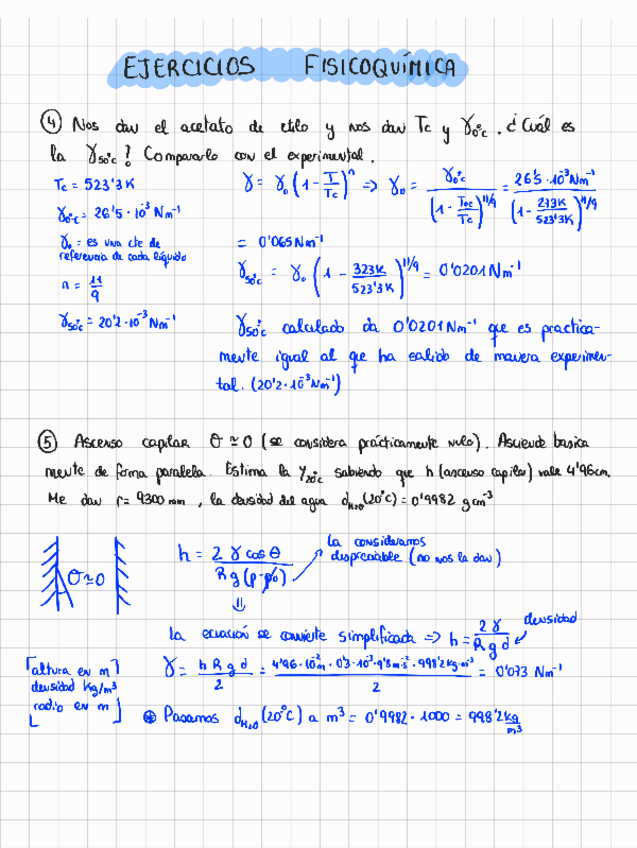 EJERCICIOS FISICOQUÍMICA
④ Nos dan el acetato de etilo y nos dan Tc y γ0°c. ¿Cuál es
la γ50°c? Compararlo con el experimental.
Tc = 523'3 K
γ0°c = 26'5 · 10⁻³ Nm⁻¹
γ₀ = es una cte de
referencia de cada líquido
n = 11/9
γ50°c = 20'2 · 10⁻³ Nm⁻¹
γ = γ₀ (1 - T/Tc)ⁿ => γ₀ = γ0°c / (1 - T0°c/Tc)^11/9 = 26'5 · 10⁻³ Nm⁻¹ / (1 - 273K/523'3K)^11/9
= 0'065 Nm⁻¹
γ50°c = γ₀ (1 - 323K/523'3K)^11/9 = 0'0201 Nm⁻¹
γ50°c calculado da 0'0201 Nm⁻¹ que es practica-
mente igual al que ha salido de manera experimen-
tal. (20'2 · 10⁻³ Nm⁻¹)
⑤ Ascenso capilar θ ≃ 0 (se considera prácticamente nulo). Asciende basica
mente de forma paralela. Estima la γ20°c sabiendo que h (ascenso capilar) vale 4'96cm.
Me dan r = 9300 mm, la densidad del agua dH₂O (20°C) = 0'9982 g cm⁻³
θ ≃ 0
h = 2 γ cos θ / R g (ρ - ρ₀)
la consideramos
despreciable (no nos la dan)
⇓
la ecuación se convierte simplificada => h = 2 γ / R g d
densidad
[altura en m]
densidad kg/m³
radio en m
γ = h R g d / 2 = 4'96 · 10⁻² m · 0'3 · 10⁻³ · 9'8 m · s⁻² · 998'2 kg · m⁻³ / 2 = 0'073 Nm⁻¹
⊛ Pasamos dH₂O (20°C) a m³ = 0'9982 · 1000 = 998'2 kg/m³